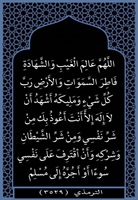 اللَّهُمَّ عَالِمَ الْغَيْبِ وَالشَّهَادَةِ
فَاطِرَ السَّمَوَاتِ وَالْأَرْضِ رَبَّ
كُلِّ شَيْءٍ وَمَلِيكَهُ أَشْهَدُ أَنْ
لَا إِلَهَ إِلَّا أَنْتَ أَعُوذُ بِكَ مِنْ
شَرِّ نَفْسِي وَمِنْ شَرِّ الشَّيْطَانِ
وَشِرْكِهِ وَأَنْ أَقْتَرِفَ عَلَى نَفْسِي
سُوءًا أَوْ أَجُرَّهُ إِلَى مُسْلِمٍ
الترمذي (٣٥٢٩)